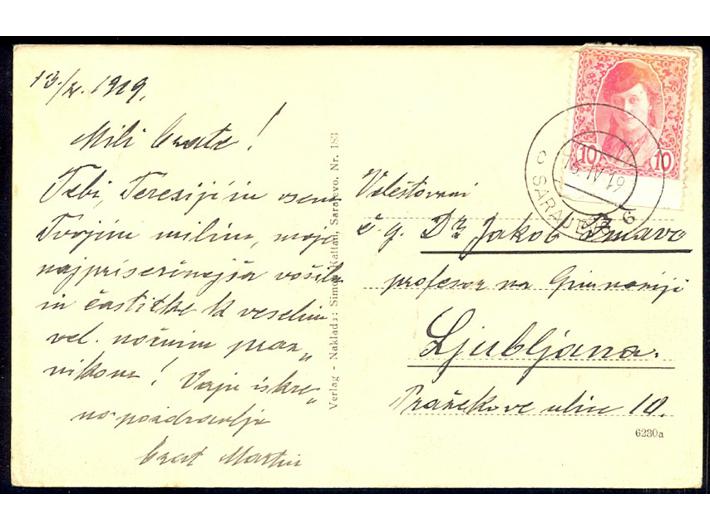 13./IV. 1919.
Mili brate!
Tebi, Tereziji in vsem
Tvojim milim, moja
najpriserčnejša vošila
in častitke k veselim
vel. nočnim praz„
nikom! Vaju iskre„
no pozdravlja
brat Martin
Verlag - Naklada: Simon Kattan, Sarajevo. Nr. 183
10 10
SARAJEVO
13 IV 19
6
Velešto​vani
č. g. Dr. Jakob
profesor na Gimnaziji
Ljubljana.
Pražakove ulice 10.
6230a